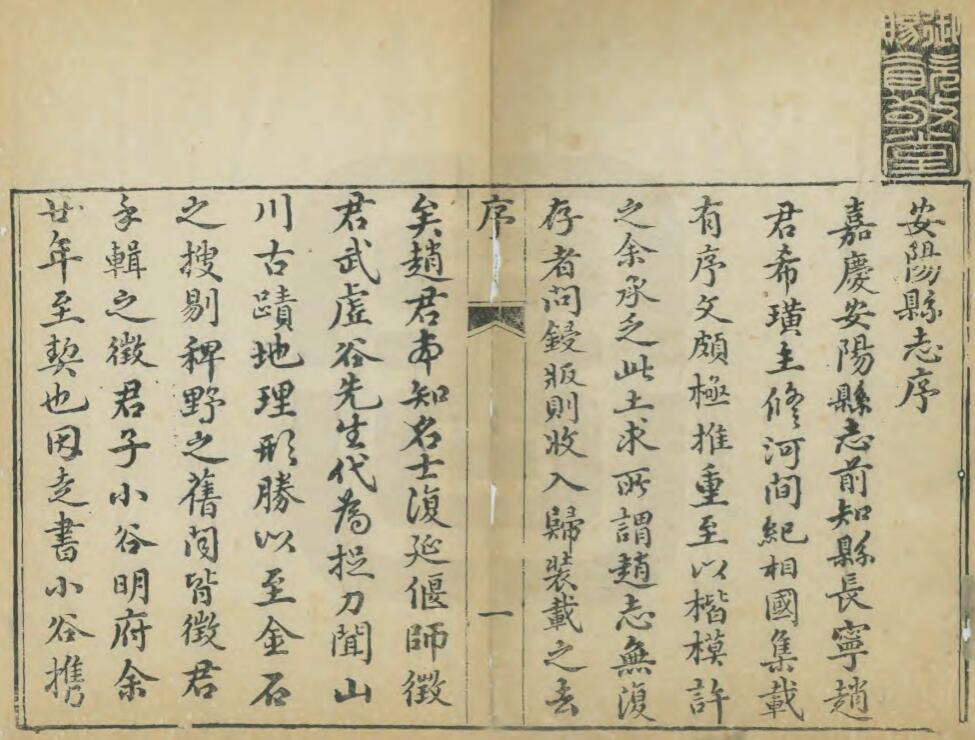 御賜
安陽縣志序
嘉慶安陽縣志前知縣長寧趙
君希璜主修河間紀相國集載
有序文頗極推重至以楷模許
之余承乏此土求所謂趙志無復
存者問鋟版則收入歸裝載之去
序
一
矣趙君本知名士復延偃師徵
君武虛谷先生代為捉刀聞山
川古蹟地理形勝以至金石
之搜剔稗野之舊聞皆徵君
手輯之徵君子小谷明府余
廿年至契也因走書小谷攜